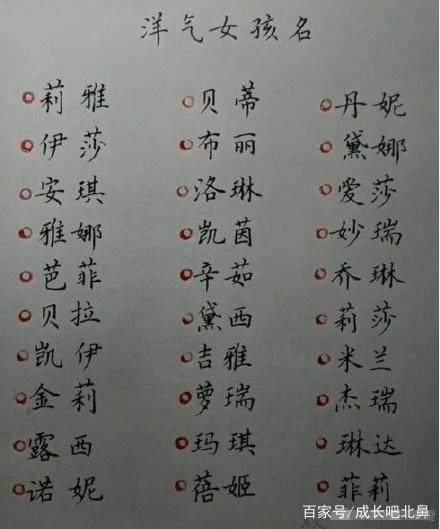 洋气女孩名
莉雅 贝蒂 丹妮
伊莎 布丽 黛娜
安琪 洛琳 爱莎
雅娜 凯茵 妙瑞
芭菲 辛茹 乔琳
贝拉 黛西 莉莎
凯伊 吉雅 米兰
金莉 萝瑞 杰瑞
露西 玛琪 琳达
诺妮 蓓姬 菲莉
百家号/成长吧北鼻